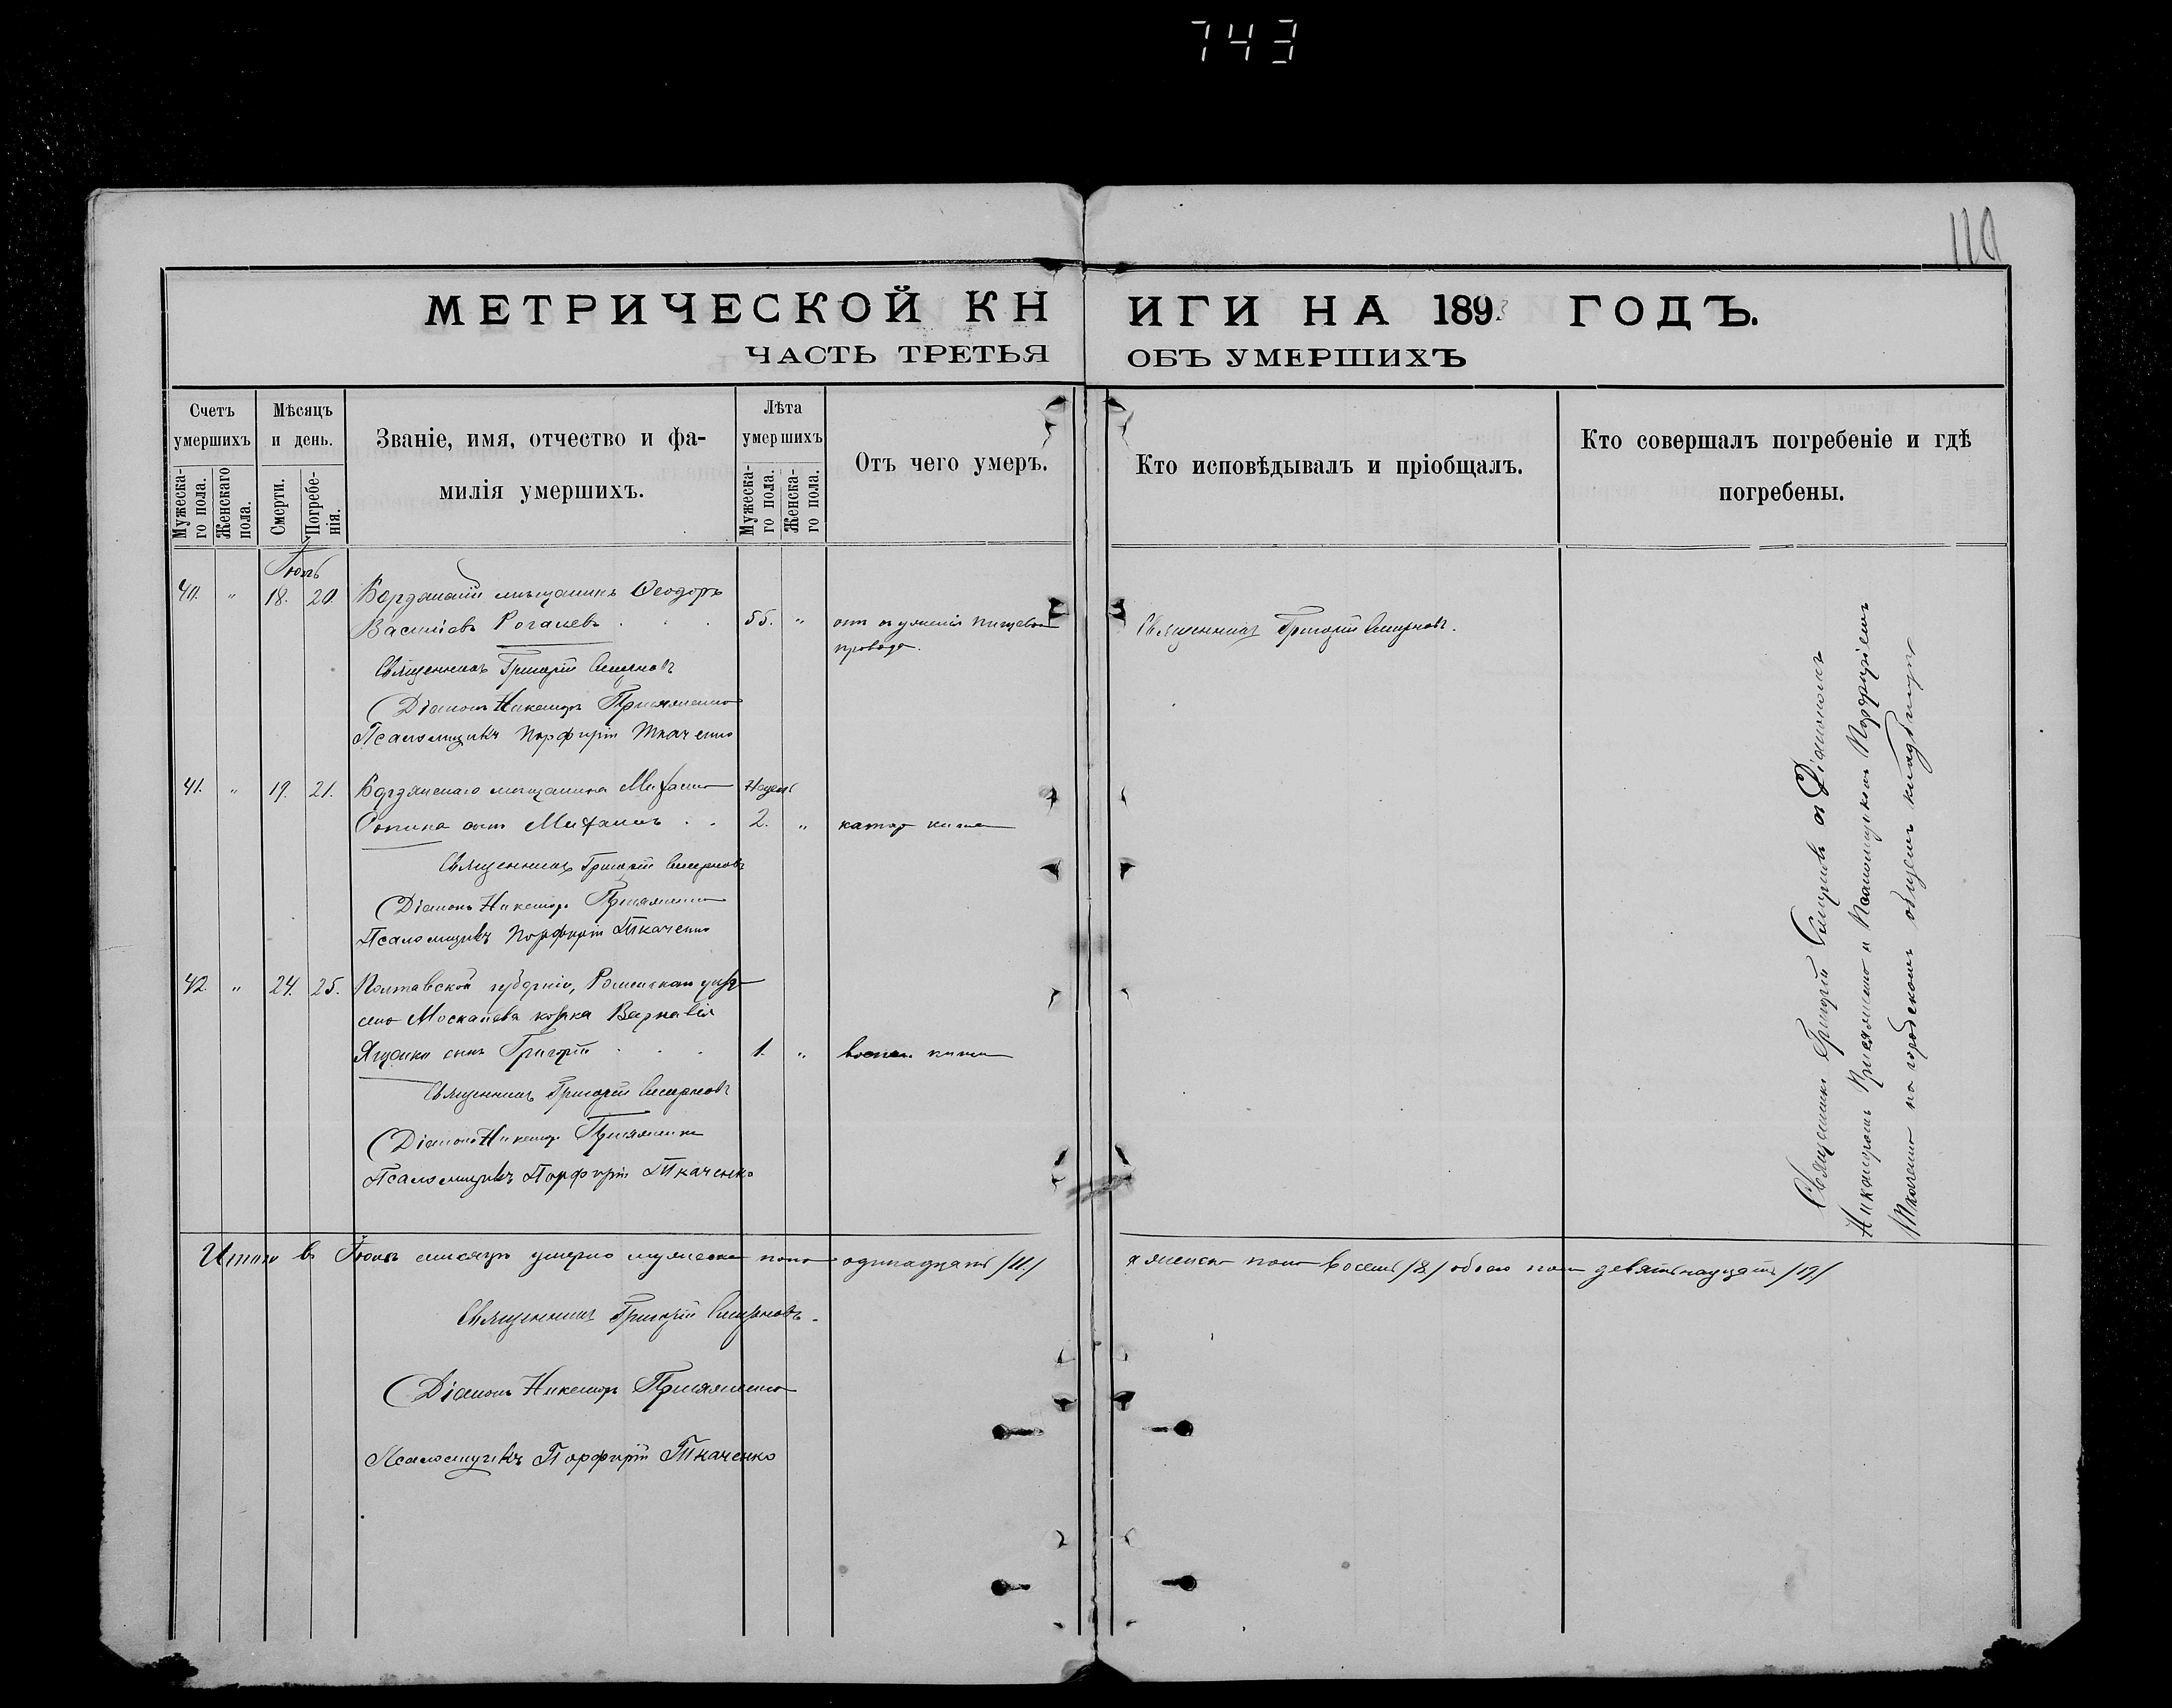 743
110
МЕТРИЧЕСКОЙ КНИГИ НА 1893 ГОДЪ.
ЧАСТЬ ТРЕТЬЯ ОБЪ УМЕРШИХЪ
Счетъ умершихъ
Мужеска-го пола.
Женскаго пола.
Мѣсяцъ и день.
Смерти.
Погребе-нія.
Званіе, имя, отчество и фа-
милія умершихъ.
Лѣта умершихъ
Мужеска-го пола.
Женска-го пола.
Отъ чего умеръ.
Кто исповѣдывалъ и пріобщалъ.
Кто совершалъ погребеніе и гдѣ
погребены.
Іюль
40. " 18. 20. Бердянскій мѣщанинъ Ѳеодоръ
Васильевъ 55. " отъ съуженія пищевого
провода.
Священникъ Григорій Смирновъ.
Священникъ Григорій Смирновъ
Діаконъ Никаноръ Присяженко
Псаломщикъ Порфирій Ткаченко
41. " 19. 21. Бердянскаго мѣщанина Михаила Недѣль
сынъ Михаилъ 2. " катар кишек
Священникъ Григорій Смирновъ
Діаконъ Никаноръ Присяженко
Псаломщикъ Порфирій Ткаченко
42. " 24. 25. Полтавской губерніи, Роменскаго уѣзда
село козака Варнавія
сынъ Григорій 1. " воспал. кишек
Священникъ Григорій Смирновъ
Діаконъ Никаноръ Присяженко
Псаломщикъ Порфирій Ткаченко
Священникъ Григорій Смирновъ съ Діакономъ
Никаноромъ Присяженко и Псаломщикомъ Порфиріемъ
Ткаченко на городскомъ общемъ кладбищѣ
Итого в Іюлѣ мѣсяцѣ умерло мужеска пола одинадцать /11/ а женска пола восемь /8/ обоего пола девятнадцать /19/
Священникъ Григорій Смирновъ.
Діаконъ Никаноръ Присяженко
Псаломщикъ Порфирій Ткаченко